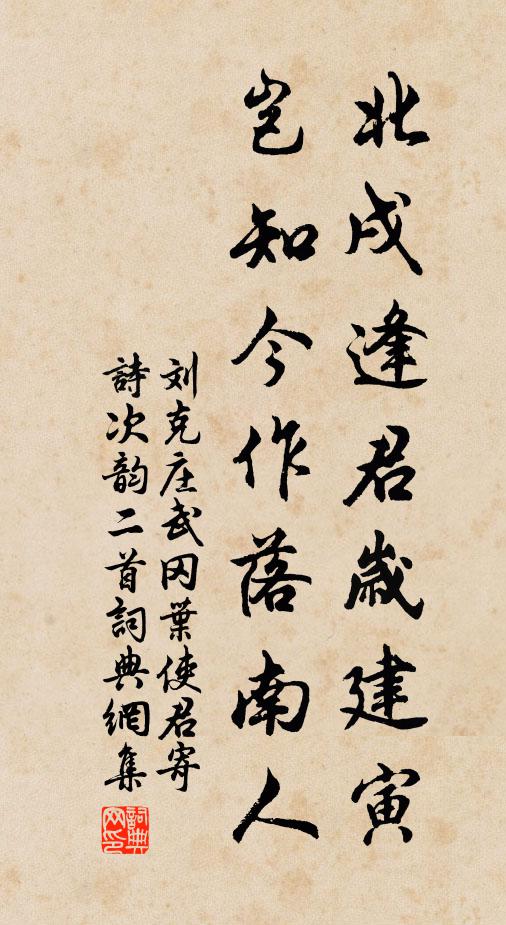 北戍逢君歲建寅
豈知今作落南人
刘克庄武冈葉使君寄
詩次韵二首詞典網集
詞典网印